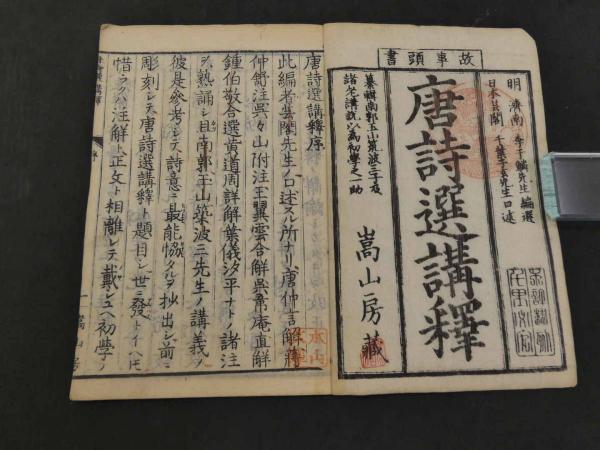 故事頭書
明 濟南 李于鱗先生 編選
日本芸閣 千葉玄之先生口述
唐詩選講釋
纂輯南郭玉山筑波三子及
諸老講説以為初学之一助
嵩山房藏
唐詩選講釋序
此編者芸閣先生ノ口述スル所ナリ唐仲言解蔣
仲舒注呉々山附注王翼雲合解呉帚庵直解
鍾伯敬合選黄道周詳解葉儀汐平ナトノ諸注
ヲ熟誦シ且南郭玉山築波三先生ノ講義ヲ
彼是參考シテ詩意ニ最能恊クルヲ抄出シ前ニ
彫刻シテ唐詩選講釋ト題目シ世ニ發トイヘモ
惜ラクハ注解ト正文ト相離レテ載レハ初學ノ